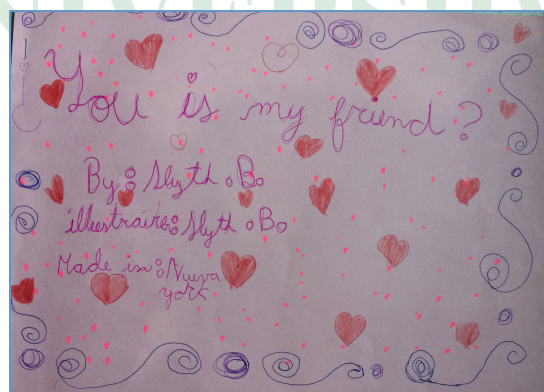 You is my friend?
By: Slyth. B.
illustraire: Slyth. B.
Made in: Nueva
york.